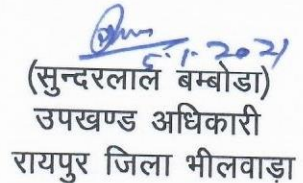 5.1.2021
(सुन्दरलाल बम्बोडा)
उपखण्ड अधिकारी
रायपुर जिला भीलवाडा